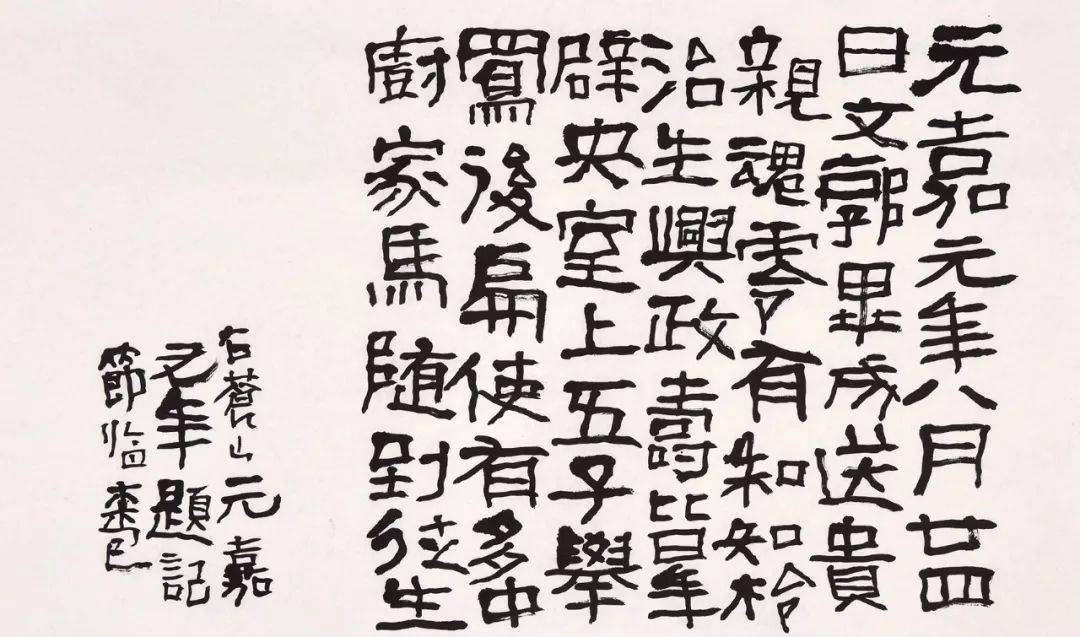 元嘉元年八月廿四
日文郭畢成送貴
親魂零有知知柃
治生興政壽皆年
辟央室上五子舉
後扁使有多中
廚家馬隨到往生
右蒼山元嘉
年題記
節臨